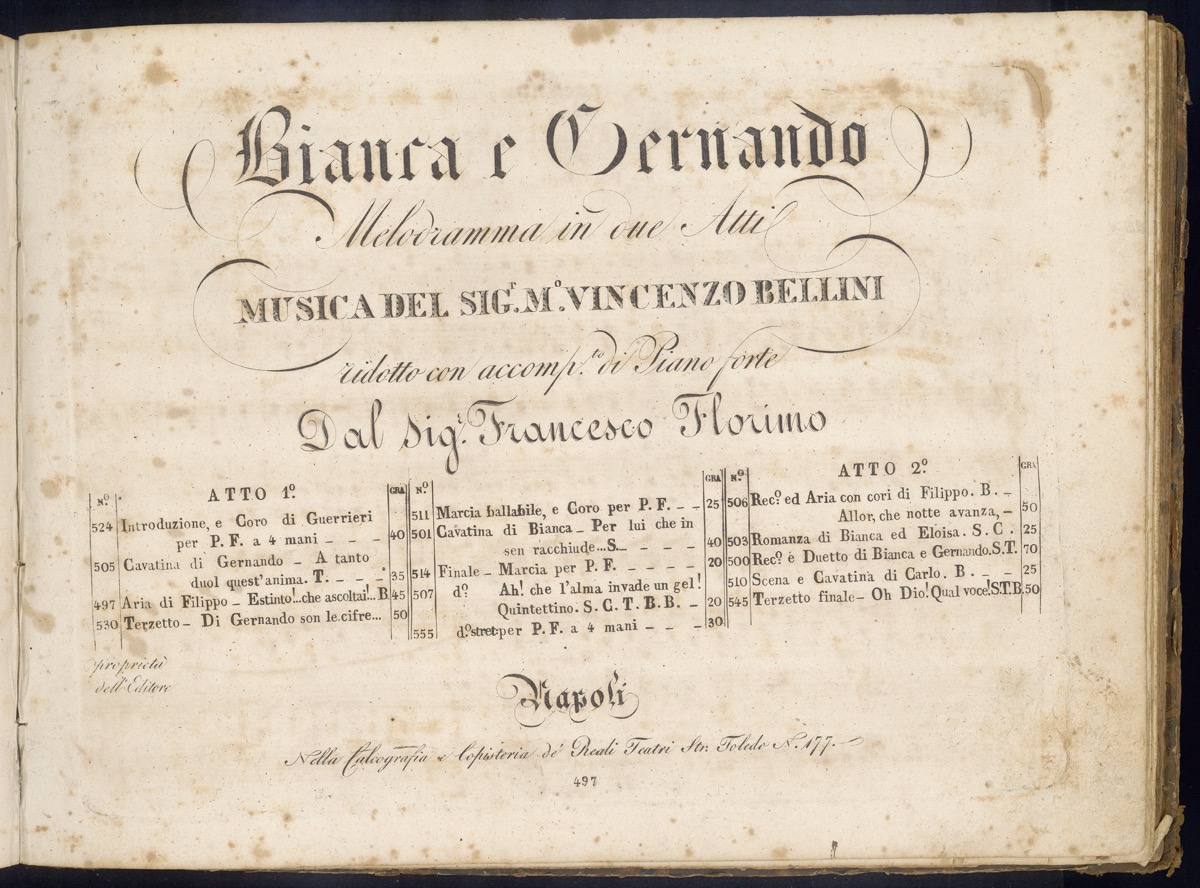 Bianca e Gernando
Melodramma in due Atti
MUSICA DEL SIG.r M.o VINCENZO BELLINI
ridotto con accomp.to di Piano forte
Dal Sig.r Francesco Florimo
N.o ATTO 1.o GRA
524 Introduzione, e Coro di Guerrieri
per P. F. a 4 mani _ _ _ 40
505 Cavatina di Gernando _ A tanto
duol quest'anima. T. _ _ _ 35
497 Aria di Filippo _ Estinto!...che ascoltai!.. B 45
530 Terzetto _ Di Gernando son le cifre... 50
N.o GRA
511 Marcia ballabile, e Coro per P. F. _ _ 25
501 Cavatina di Bianca _ Per lui che in
sen racchiude...S. _ _ _ _ 40
514 Finale _ Marcia per P. F. _ _ _ _ 20
507 d.o Ah! che l'alma invade un gel!
Quintettino. S. C. T. B. B. _ 20
555 d.o stret. per P. F. a 4 mani _ _ _ 30
N.o ATTO 2.o GRA
506 Rec.o ed Aria con cori di Filippo. B. _
Allor, che notte avanza, _ 50
503 Romanza di Bianca ed Eloisa. S. C. 25
500 Rec.o e Duetto di Bianca e Gernando. S.T. 70
510 Scena e Cavatina di Carlo. B. _ _ 25
545 Terzetto finale _ Oh Dio! Qual voce! S.T.B. 50
proprietà
dell'Editore
Napoli
Nella Calcografia e Copisteria de' Reali Teatri Str. Toledo N.o 177.
497